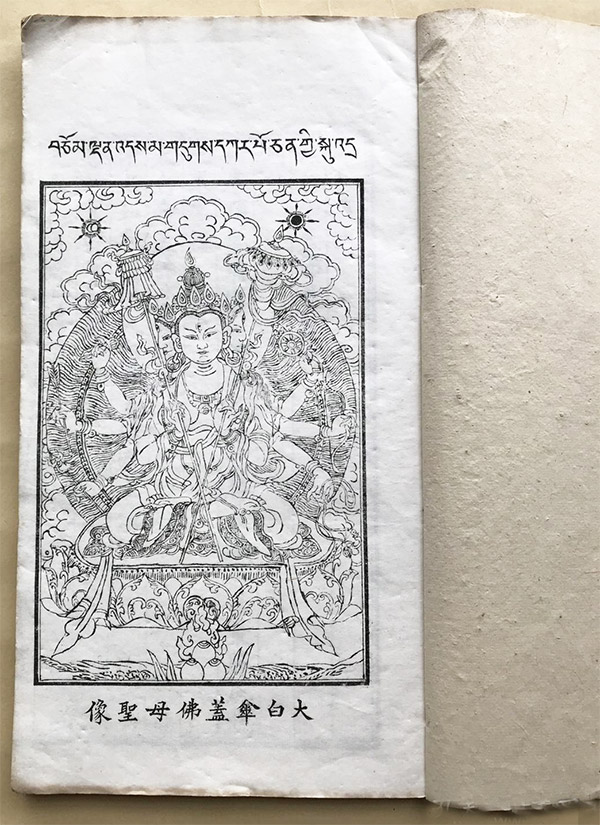 བཅོམ་ལྡན་འདས་མ་གདུགས་དཀར་པོ་ཅན་གྱི་སྐུ་འདྲ
大白傘蓋佛母聖像